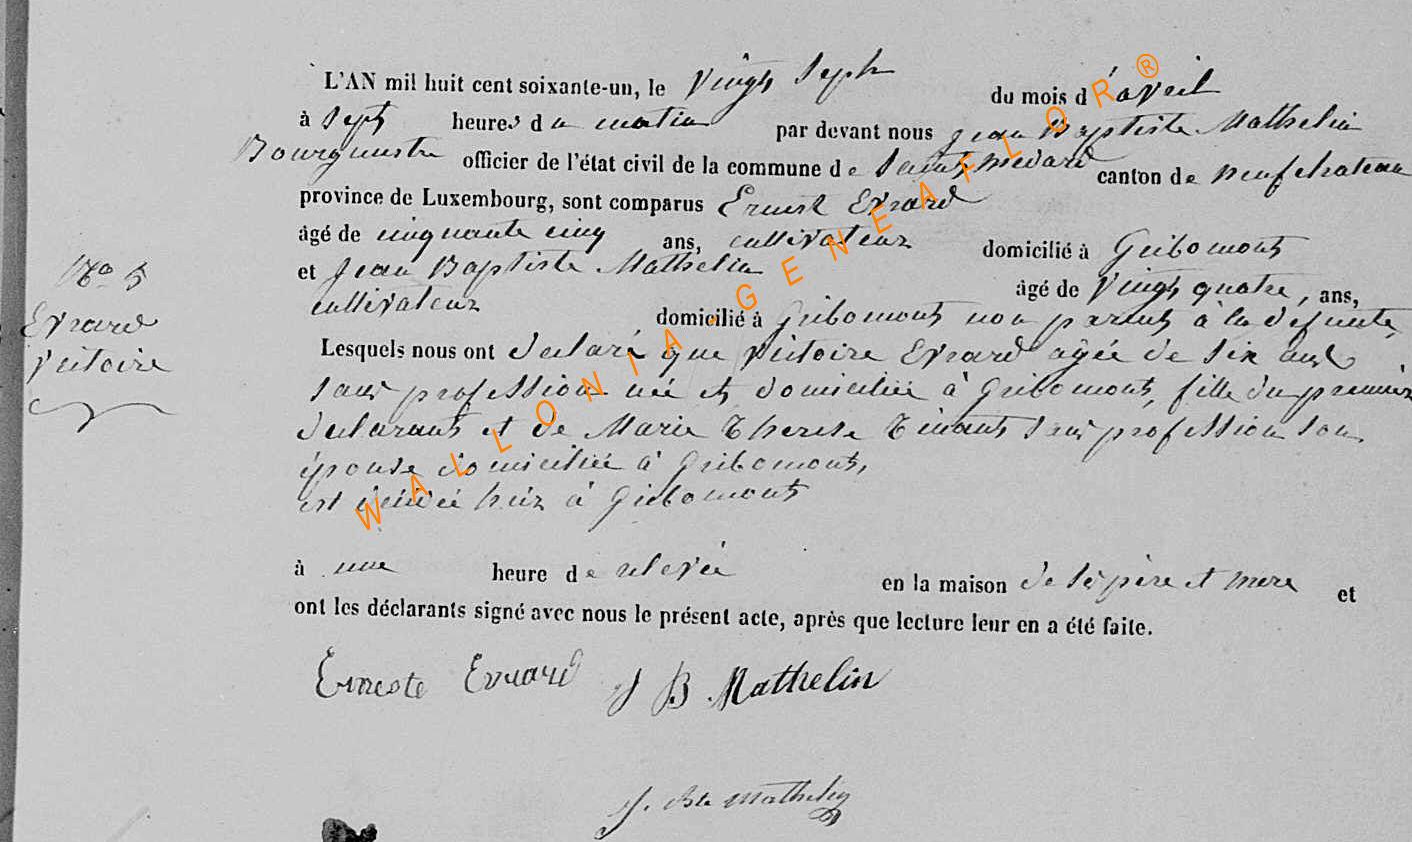 L'AN mil huit cent soixante-un, le vingt sept du mois d'avril
à sept heures du matin par devant nous Jean Baptiste Mathelin
Bourgmestre officier de l'état civil de la commune de Saint médard canton de neufchateau
province de Luxembourg, sont comparus Ernest Evrard
âgé de cinquante cinq ans, cultivateur domicilié à Gribomont
et Jean Baptiste Mathelin âgé de vingt quatre, ans,
cultivateur domicilié à Gribomont non parent à la défunte
No 5
Evrard
Victoire
Lesquels nous ont déclaré que victoire Evrard agée de six ans
sans profession née et domiciliée à Gribomont, fille du premier
déclarant et de Marie Therese Tinant sans profession son
épouse domiciliée à Gribomont,
est décédée hier à Gribomont
à une heure de relevée en la maison de sè père et mère et
ont les déclarants signé avec nous le présent acte, après que lecture leur en a été faite.
Erneste Evrard J B Mathelin
J. Bte Mathelin
WALLONIA GENEAFLOR®